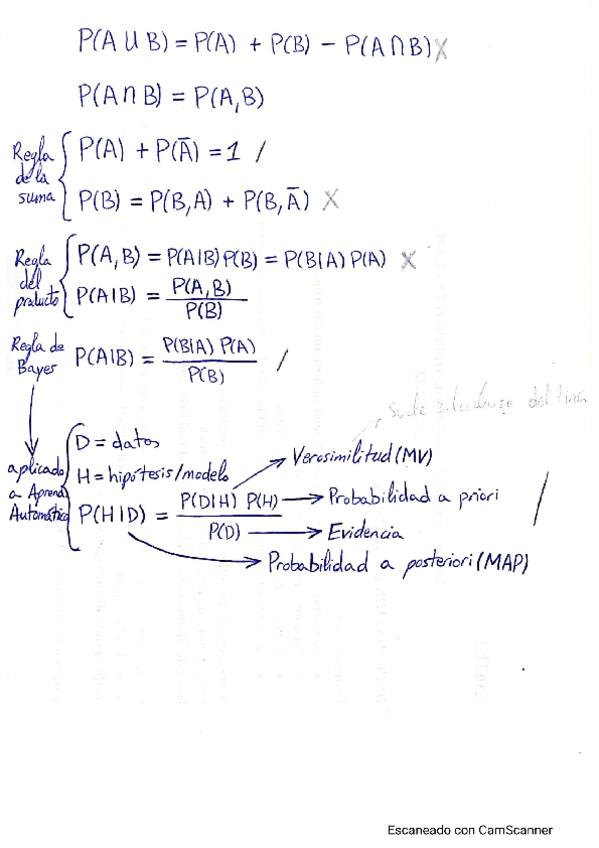 P(A ∪ B) = P(A) + P(B) − P(A ∩ B) X
P(A ∩ B) = P(A,B)
Regla de la suma
P(A) + P(Ā) = 1 /
P(B) = P(B,A) + P(B,Ā) X
Regla del producto
P(A,B) = P(A|B) P(B) = P(B|A) P(A) X
P(A|B) = P(A,B) / P(B)
Regla de Bayes
P(A|B) = P(B|A) P(A) / P(B) /
Suele del
aplicado a Aprend. Automático
D = datos
H = hipótesis/modelo
Verosimilitud (MV)
P(H|D) = P(D|H) P(H) / P(D) /
→ Probabilidad a priori
→ Evidencia
→ Probabilidad a posteriori (MAP)
Escaneado con CamScanner